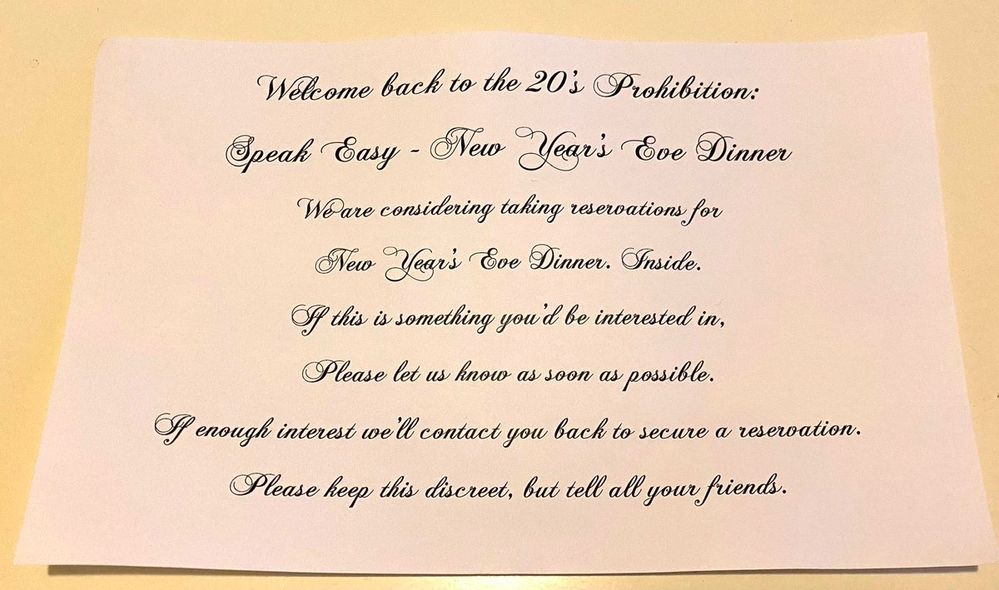 Welcome back to the 20's Prohibition:
Speak Easy - New Year's Eve Dinner
We are considering taking reservations for
New Year's Eve Dinner. Inside.
If this is something you'd be interested in,
Please let us know as soon as possible.
If enough interest we'll contact you back to secure a reservation.
Please keep this discreet, but tell all your friends.